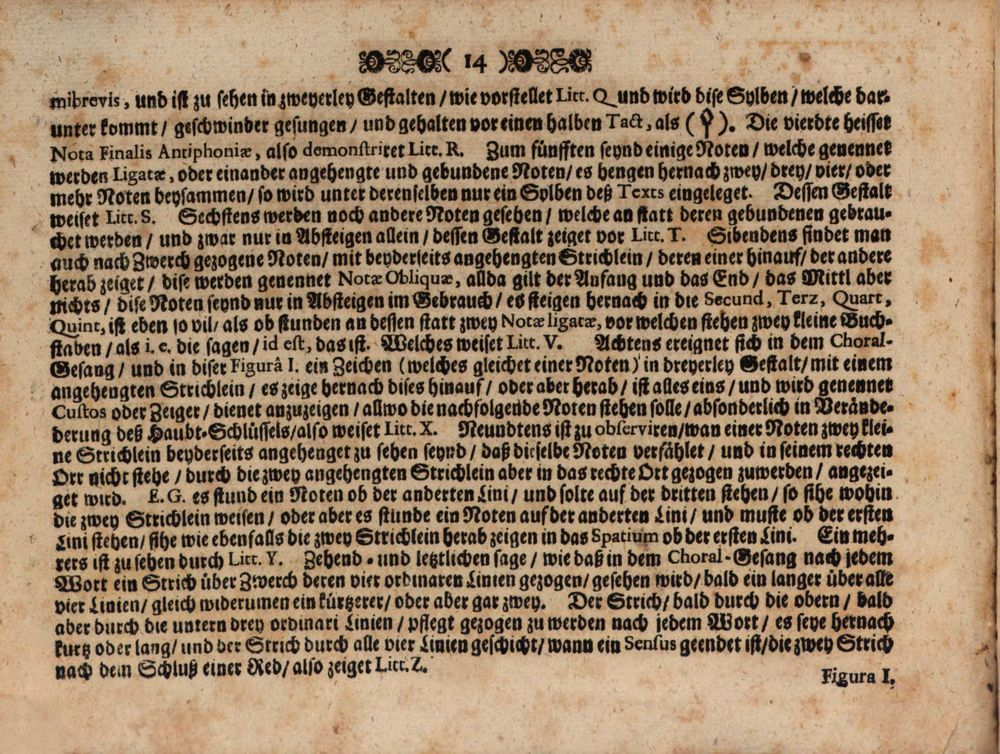 ( 14 )
mibrevis, und ist zu sehen in zweyerley Gestalten / wie vorstellet Litt. Q und wird dise Sylben / welche dar-
unter kommt / geschwinder gesungen / und gehalten vor einen halben Tact, als ( ). Die vierdte heisset
Nota Finalis Antiphoniæ, also demonstriret Litt. R. Zum fünfften seynd einige Noten / welche genennet
werden Ligatæ, oder einander angehengte und gebundene Noten / es hengen hernach zwey / drey / vier / oder
mehr Noten beysammen / so wird unter derenselben nur ein Sylben deß Texts eingeleget. Dessen Gestalt
weiset Litt. S. Sechstens werden noch andere Noten gesehen / welche an statt deren gebundenen gebrau-
chet werden / und zwar nur in Absteigen allein / dessen Gestalt zeiget vor Litt. T. Sibendens findet man
auch nach Zwerch gezogene Noten / mit beyderseits angehengten Strichlein / deren einer hinauf / der andere
herab zeiget / dise werden genennet Notæ Obliquæ, allda gilt der Anfang und das End / das Mittl aber
nichts / dise Noten seynd nur in Absteigen im Gebrauch / es steigen hernach in die Secund, Terz, Quart,
Quint, ist eben so vil / als ob stunden an dessen statt zwey Notæ ligatæ, vor welchen stehen zwey kleine Buch-
staben / als i. e. die sagen / id est, das ist. Welches weiset Litt. V. Achtens ereignet sich in dem Choral-
Gesang / und in diser Figurâ I. ein Zeichen (welches gleichet einer Noten) in dreyerley Gestalt / mit einem
angehengten Strichlein / es zeige hernach dises hinauf / oder aber herab / ist alles eins / und wird genennet
Custos oder Zeiger / dienet anzuzeigen / allwo die nachfolgende Noten stehen solle / absonderlich in Verände-
derung deß Haubt-Schlüssels / also weiset Litt. X. Neundtens ist zu observiren / wan einer Noten zwey klei-
ne Strichlein beyderseits angehenget zu sehen seynd / daß dieselbe Noten verfählet / und in seinem rechten
Ort nicht stehe / durch die zwey angehengten Strichlein aber in das rechte Ort gezogen zuwerden / angezei-
get wird. E.G. es stund ein Noten ob der anderten Lini / und solte auf der dritten stehen / so sihe wohin
die zwey Strichlein weisen / oder aber es stunde ein Noten auf der anderten Lini / und muste ob der ersten
Lini stehen / sihe wie ebenfalls die zwey Strichlein herab zeigen in das Spatium ob der ersten Lini. Ein meh-
rers ist zu sehen durch Litt. Y. Zehend- und letztlichen sage / wie daß in dem Choral-Gesang nach jedem
Wort ein Strich über Zwerch deren vier ordinaren Linien gezogen / gesehen wird / bald ein langer über alle
vier Linien / gleich widerumen ein kürtzerer / oder aber gar zwey. Der Strich / bald durch die obern / bald
aber durch die untern drey ordinari Linien / pflegt gezogen zu werden nach jedem Wort / es seye hernach
kurtz oder lang / und der Strich durch alle vier Linien geschicht / wann ein Sensus geendet ist / die zwey Strich
nach dem Schluß einer Red / also zeiget Litt. Z.
Figura I.